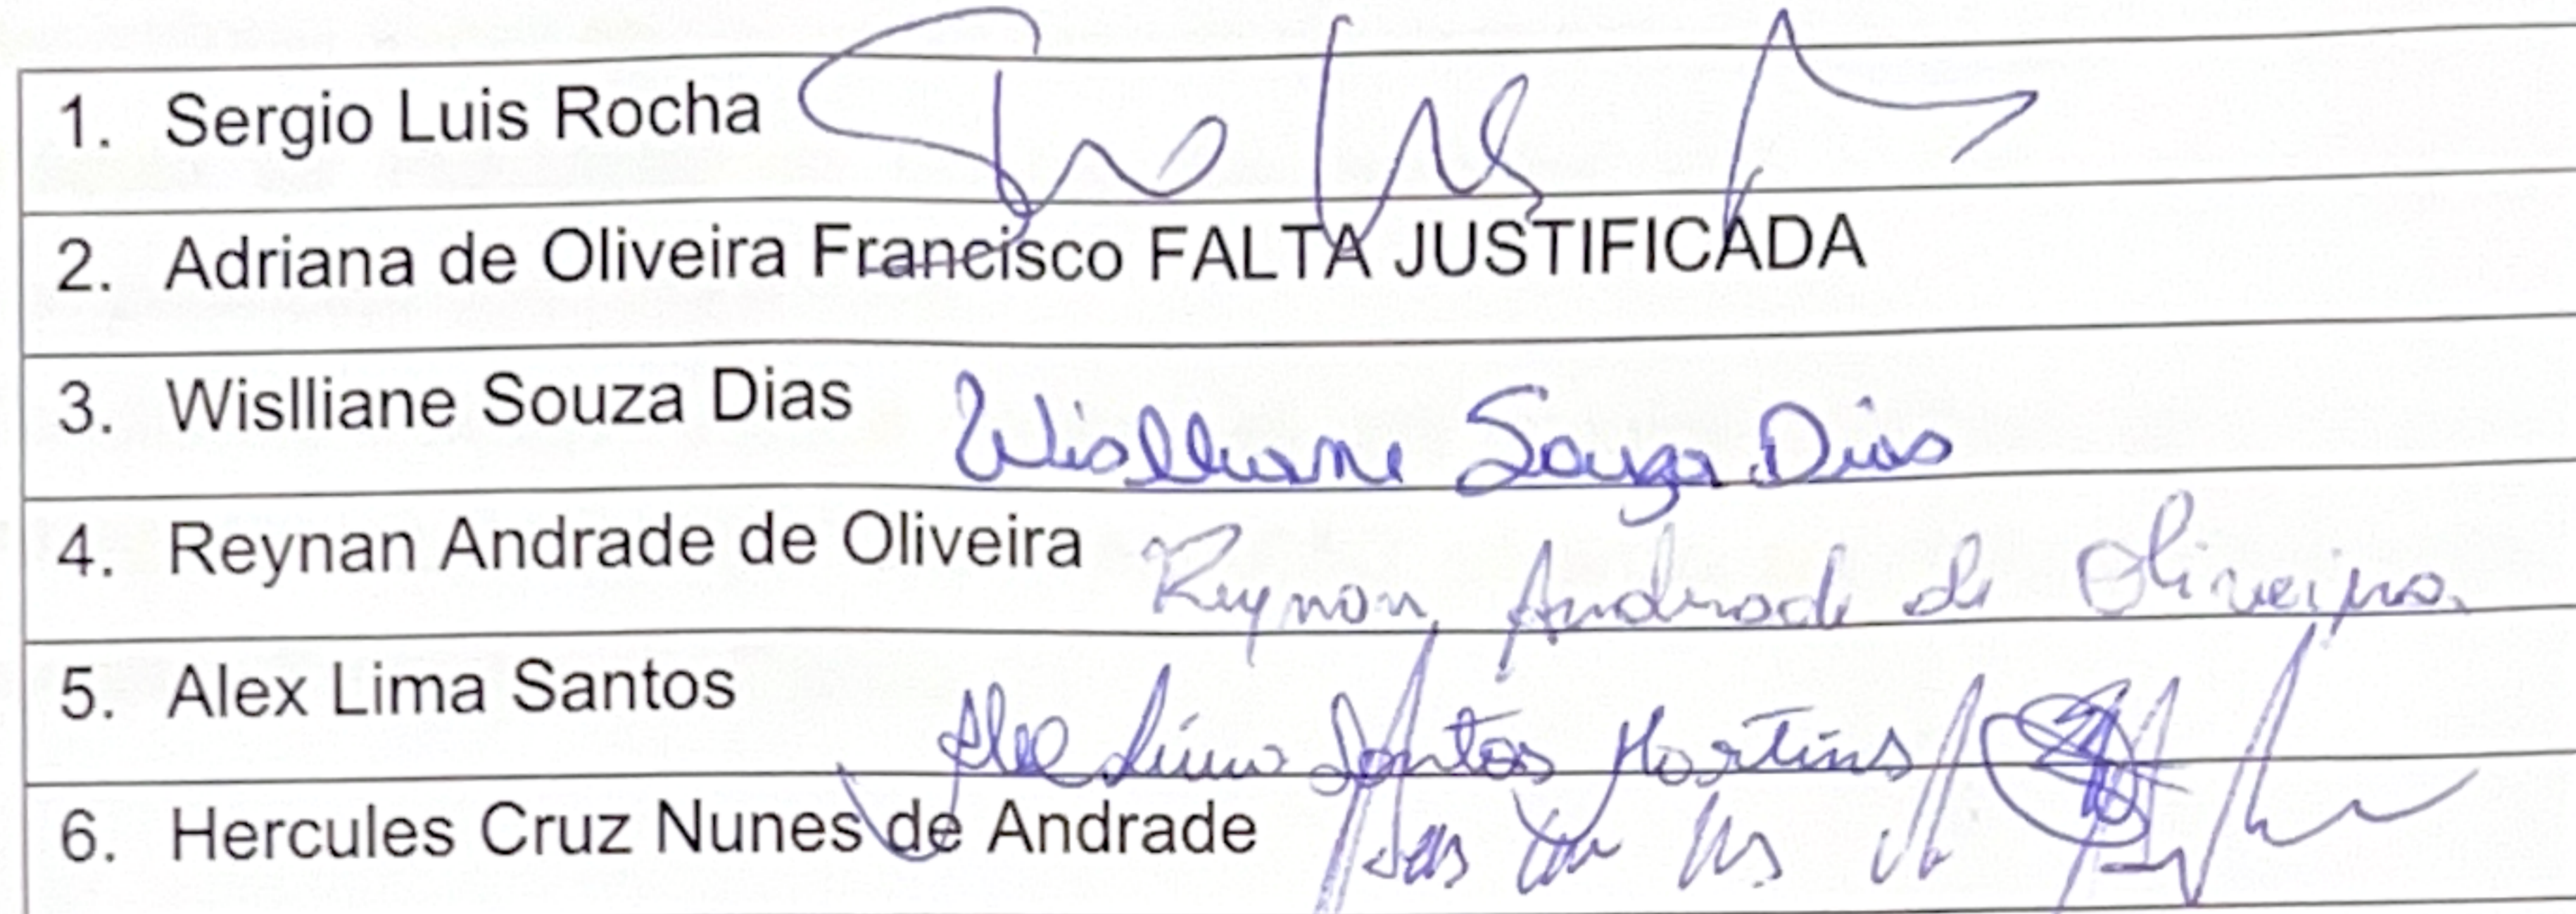 1. Sergio Luis Rocha
2. Adriana de Oliveira Francisco FALTA JUSTIFICADA
3. Wislliane Souza Dias Wislliane Souza Dias
4. Reynan Andrade de Oliveira Reynan Andrade de Oliveira
5. Alex Lima Santos Alex Lima Santos Martins
6. Hercules Cruz Nunes de Andrade